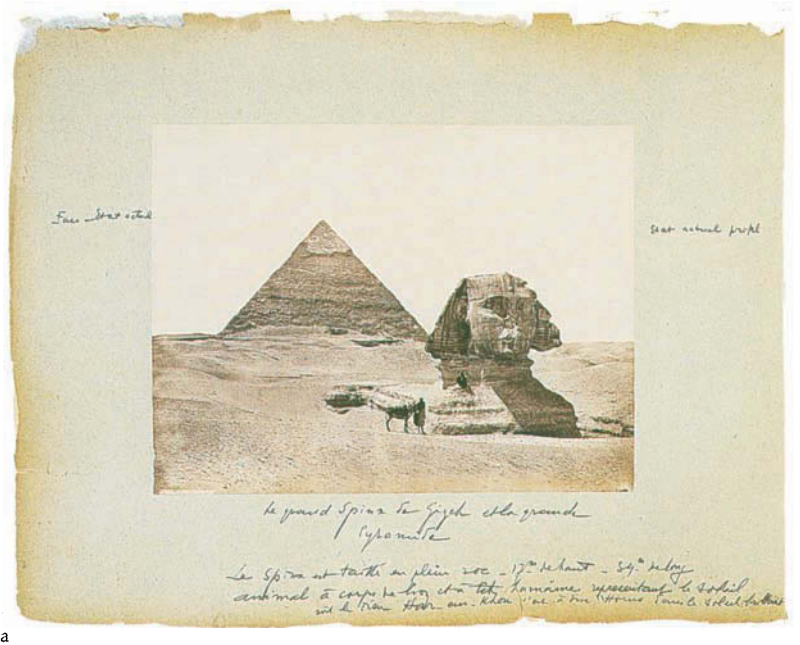 Face Etat actuel
Etat actuel profil
Le grand Spinx de Gizeh et la grande
Pyramide
Le Spinx est taillé en plein roc - 17m de haut - 39m de long
animal à corps de lion et à tête humaine représentant le soleil
soit le dieu Hor-em-Khou c'est à dire Horus dans le soleil brillant
a